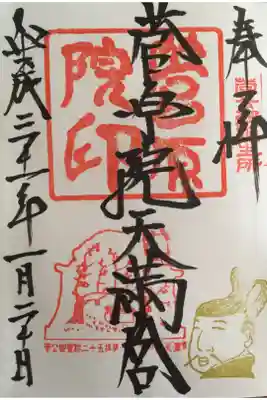 奉拝
菅原院天満宮
平成三十一年一月二十日
菅原院印